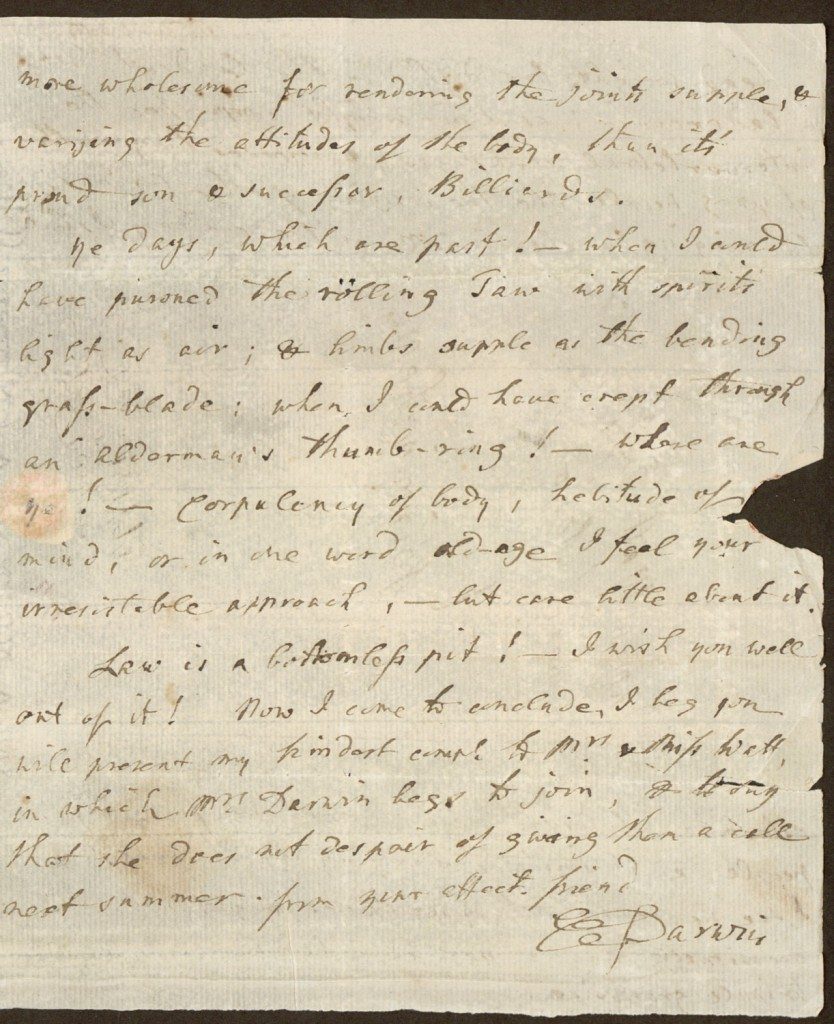 more wholesome for rendering the joints supple, &
varijing the attitudes of the body, than it's
proud son & successor, Billiards.
ye days, which are past! — when I could
have pursued the rolling Taw with spirits
light as air; & limbs supple as the bending
grass-blade; when I could have crept through
an alderman's thumb-ring! — where are
ye! — Corpulency of body, hebitude of
mind, or in one word old-age I feel your
irresistable approach, — but care little about it.
Law is a bottomless pit! — I wish you well
out of it! Now I come to conclude, I beg you
will present my kindest compts to Mrs & Miss Watt,
in which Mrs Darwin begs to join, &
that she does not despair of giving them a call
next summer. from your affect. friend
E Darwin